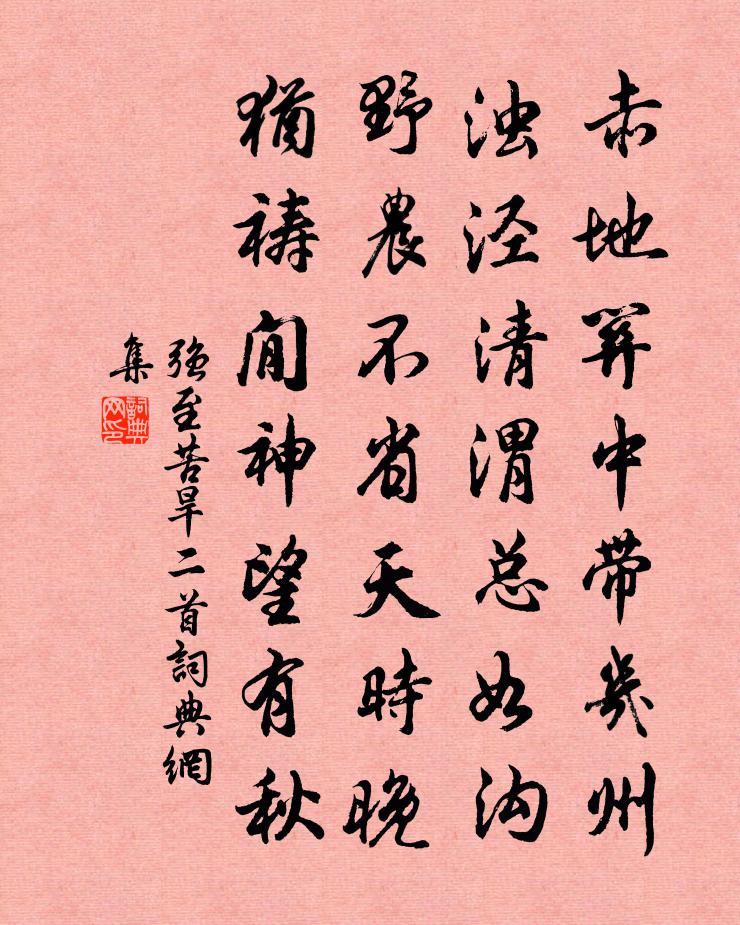 赤地關中帶幾州
浊泾清渭总如沟
野農不省天時晚
猶禱閒神望有秋
强至苦旱二首詞典網
集
詞典网印